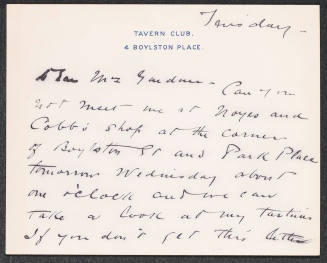 Tuesday -
TAVERN CLUB.
4 BOYLSTON PLACE.
Dear Mrs Gardner - Can you
not meet me at Noyes and
Cobb's shop at the corner
of Boylston St and Park Place
tomorrow Wednesday about
one o'clock and we can
take a look at my
If you don't get this letter